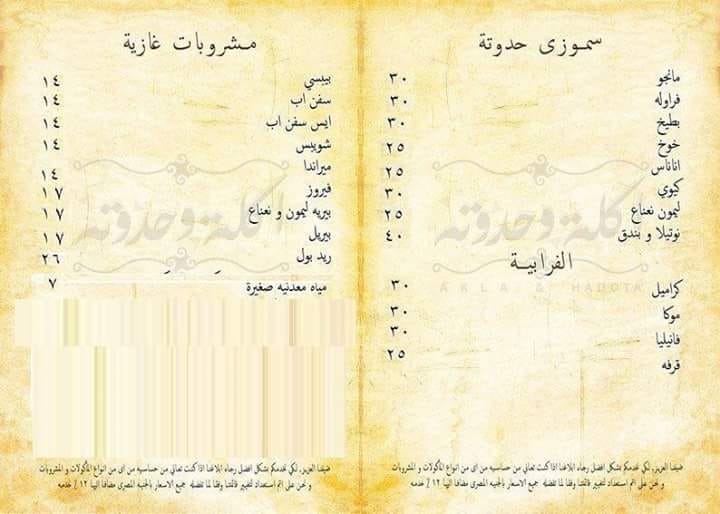 سموزى حدوتة
مانجو ٣٠
فراوله ٣٠
بطيخ ٣٠
خوخ ٢٥
اناناس ٢٥
كيوي ٣٠
ليمون نعناع ٢٥
نوتيلا و بندق ٤٠
الفرابية
كراميل ٣٠
موكا ٣٠
فانيليا ٣٠
قرفه ٢٥
ضيفنا العزيز, لكي نخدمكم بشكل افضل رجاء ابلاغنا اذا كنت تعاني من حساسيه من اى من انواع المأكولات و المشروبات
و نحن على اتم استعداد لتغيير قائمتنا وفقا لما تفضله جميع الاسعار بالجنيه المصرى مضافا اليها ١٢ ٪ خدمه
مشروبات غازية
بيبسي ١٤
سفن اب ١٤
ايس سفن اب ١٤
شويبس ١٤
ميراندا ١٤
فيروز ١٧
بيريه ليمون و نعناع ١٧
بيريل ١٧
ريد بول ٢٦
مياه معدنيه صغيرة ٧
ضيفنا العزيز, لكي نخدمكم بشكل افضل رجاء ابلاغنا اذا كنت تعاني من حساسيه من اى من انواع المأكولات و المشروبات
و نحن على اتم استعداد لتغيير قائمتنا وفقا لما تفضله جميع الاسعار بالجنيه المصرى مضافا اليها ١٢ ٪ خدمه
أكلة و حدوته
AKLA & HADOTA